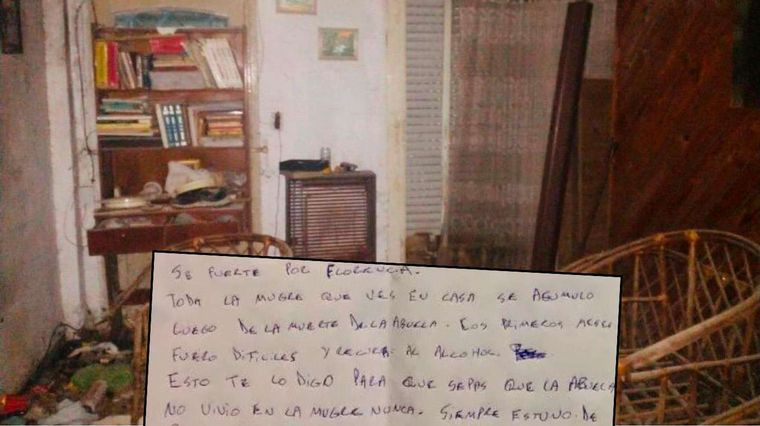 SE FUERTE POR FLORENCIA.
TODA LA MUGRE QUE VES EN CASA SE ACUMULO
LUEGO DE LA MUERTE DE LA ABUELA. LOS PRIMEROS MESES
FUERO DIFICILES Y RECURRI AL ALCOHOL.
ESTO TE LO DIGO PARA QUE SEPAS QUE LA ABUELA
NO VIVIO EN LA MUGRE NUNCA. SIEMPRE ESTUVO DE